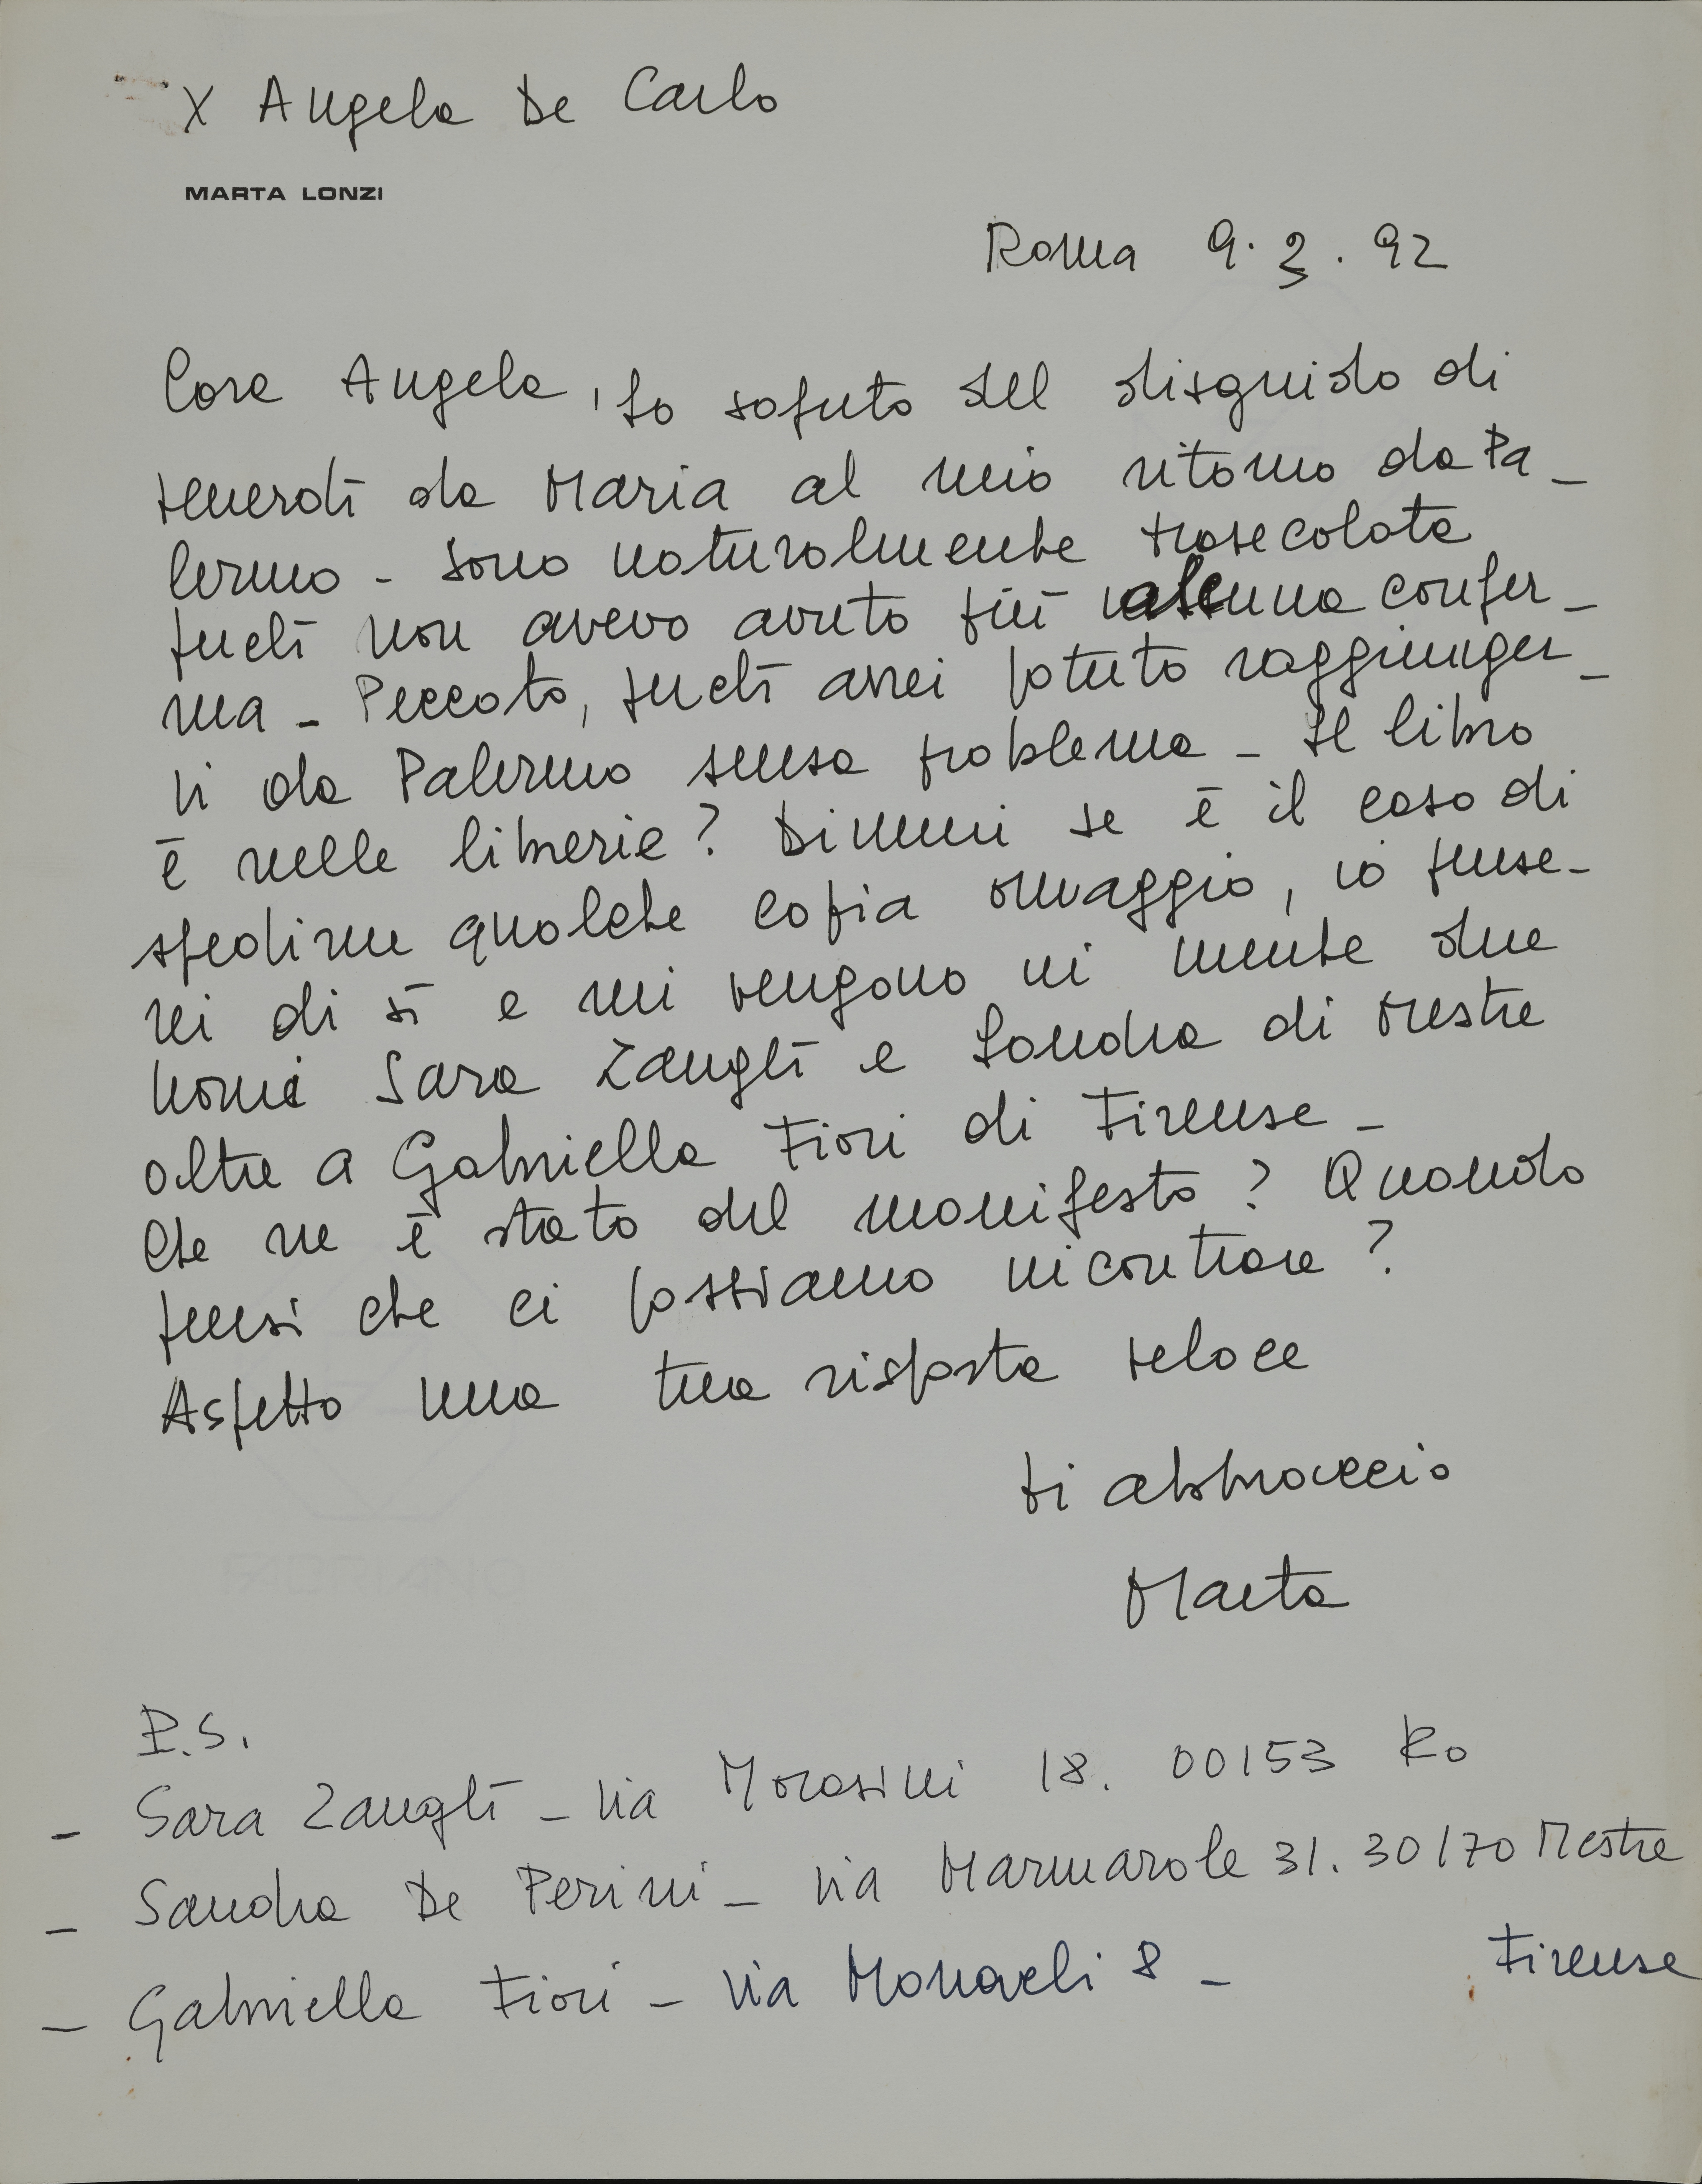 X Angela De Carlo
MARTA LONZI
Roma 9.3.92
Cara Angela, ho saputo del disguido di
venerdì da Maria al mio ritorno da Pa_
lermo - sono naturalmente trasecolata
perché non avevo avuto più alcuna confer_
ma - Peccato, perché avrei potuto raggiunger_
ti da Palermo senza problema - Il libro
è nelle librerie? Dimmi se è il caso di
spedirne qualche copia omaggio, io pense_
rei di sì e mi vengono in mente due
nomi Sara Zanghì e Sandra di Mestre
oltre a Gabriella Fiori di Firenze -
Che ne è stato del manifesto? Quando
pensi che ci possiamo incontrare?
Aspetto una tua risposta veloce
ti abbraccio
Marta
P.S.
- Sara Zanghì - Via Morosini 18. 00153 Ro
- Sandra De Perini - Via Marmarole 31. 30170 Mestre
- Gabriella Fiori - Via Monaeli 8 - Firenze
FABRIANO